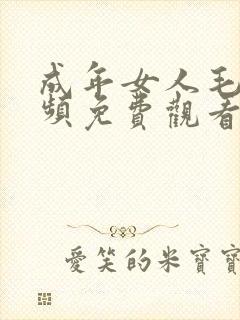 成年女人毛
頻免費觀看
愛笑的米寶寶